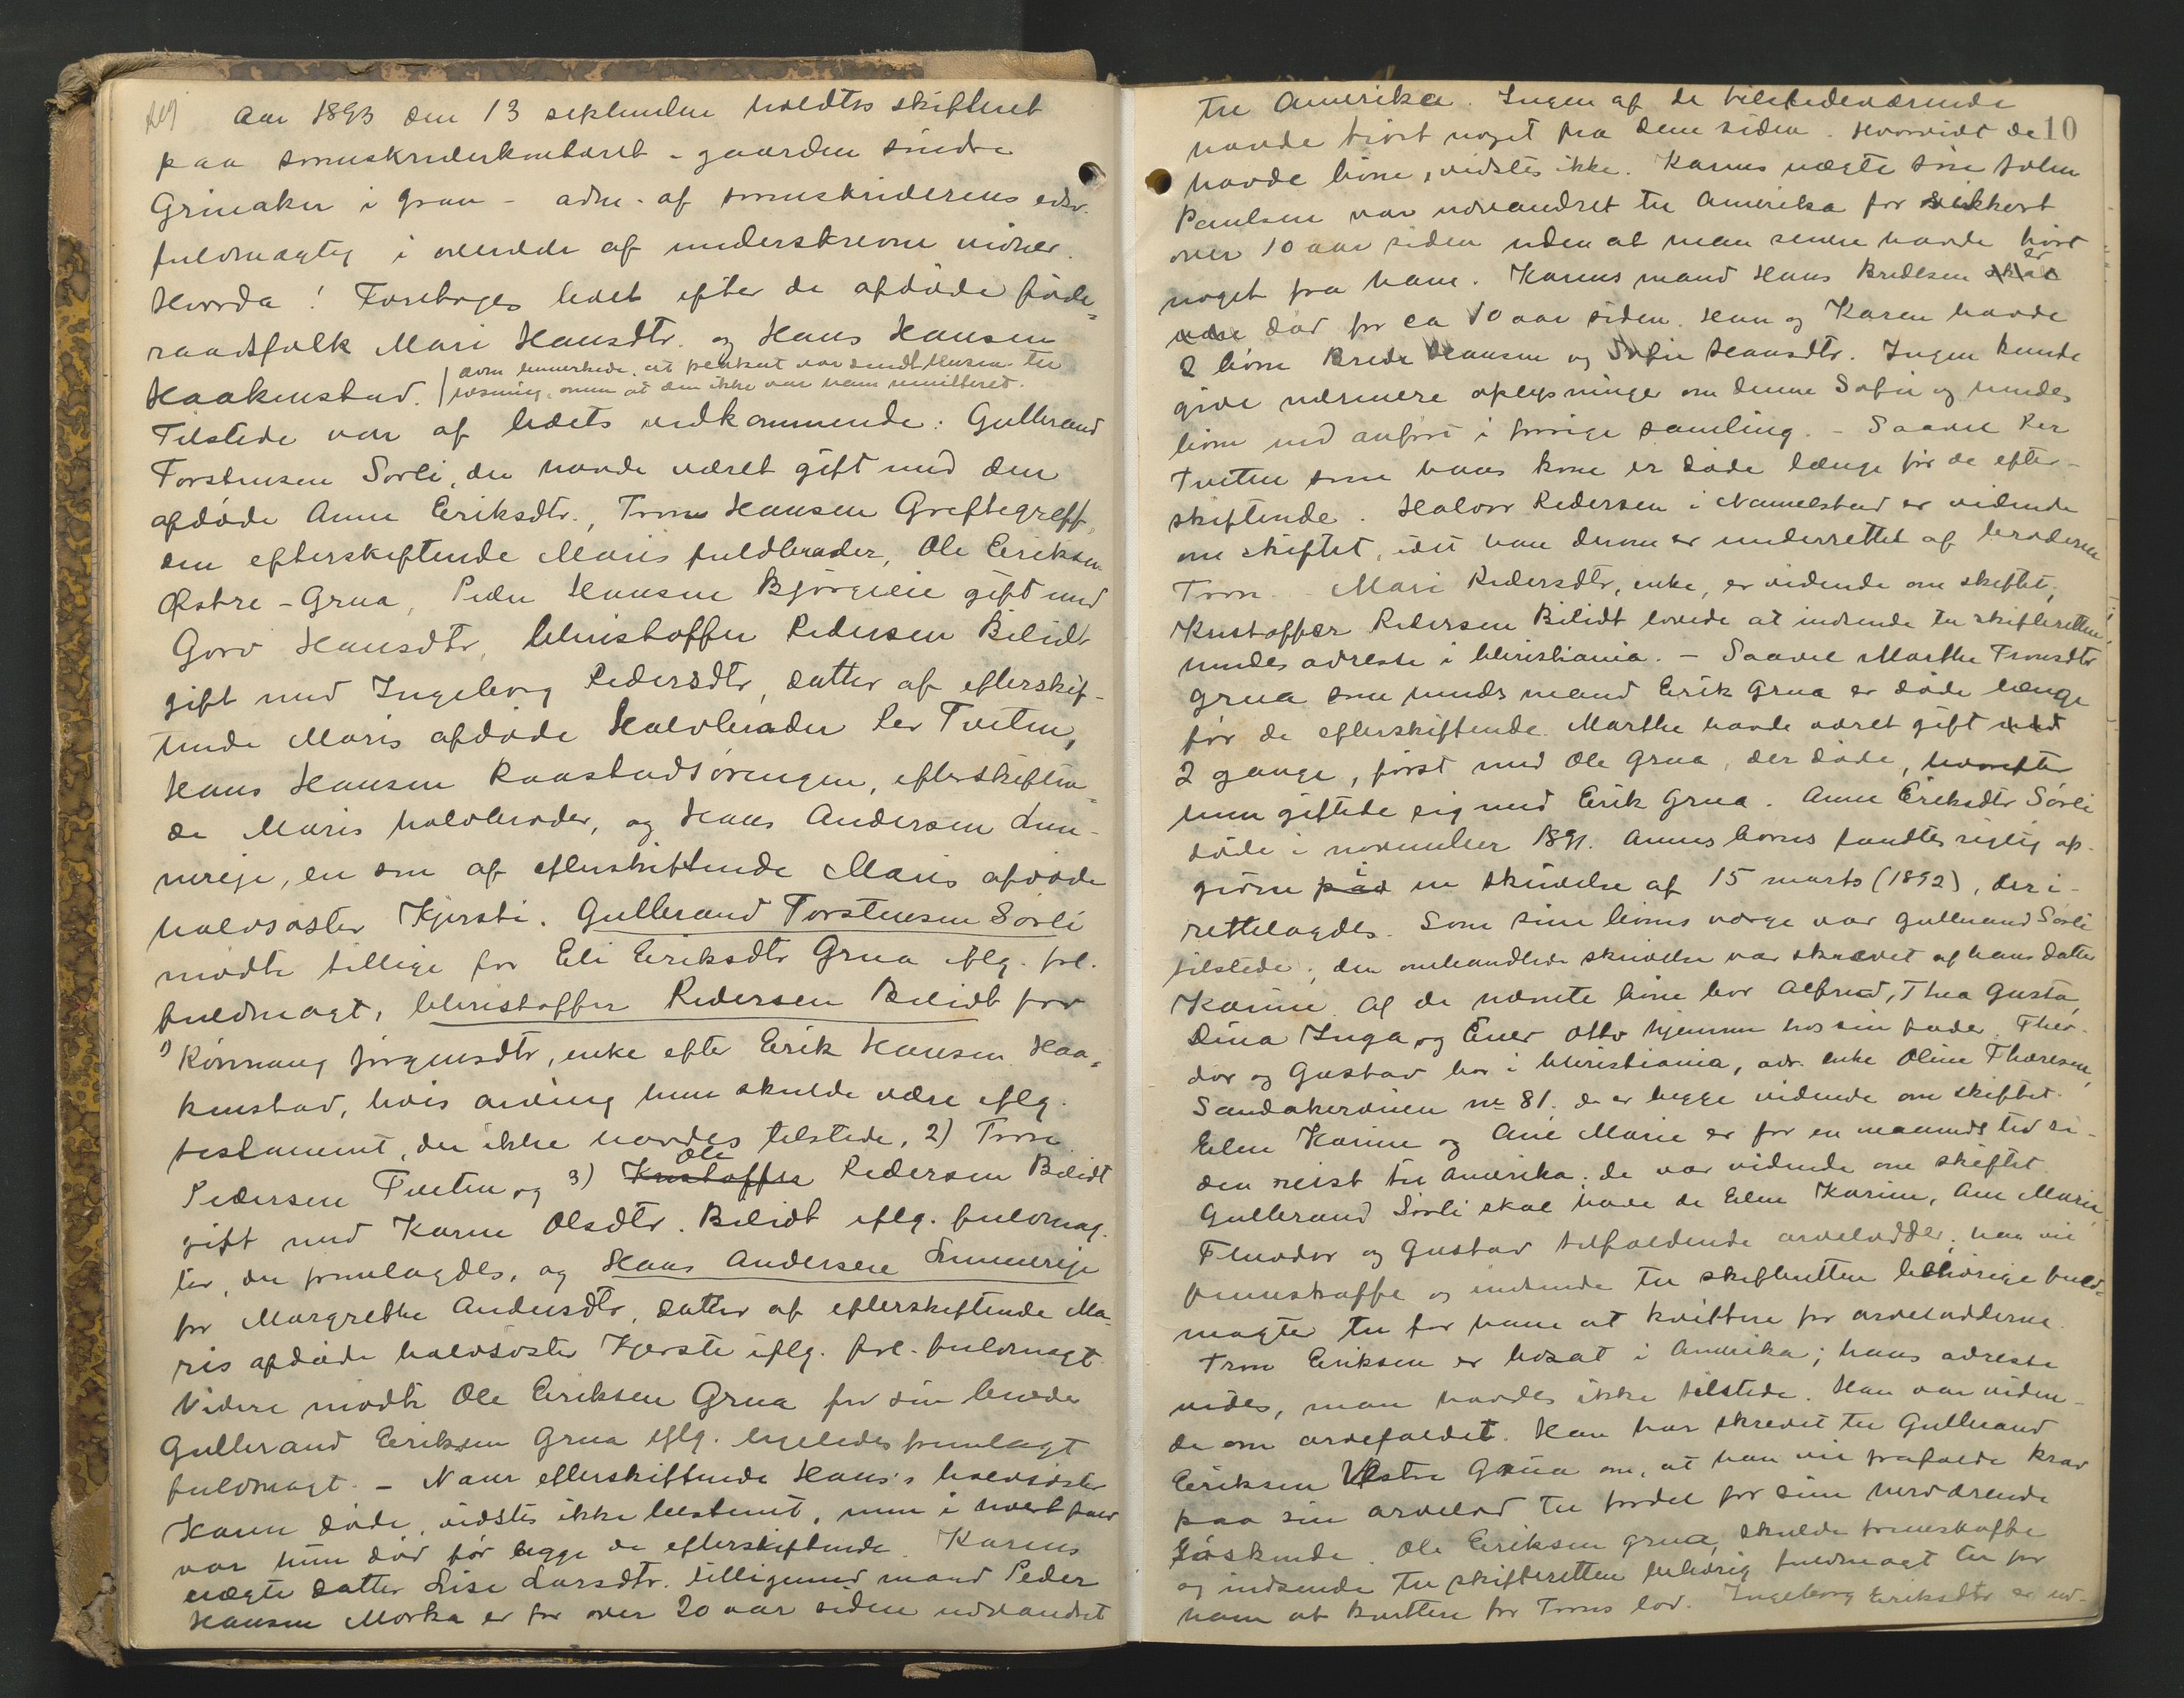 Aar 1893 den 13 september holdtes skifteret
paa sorenskriverkontoret - gaarden søndre
Grinaker i Gran - adm. af sorenskriverens edsv.
fuldmægtig i overvær af underskrevne vidner.
Hvorda! Foretoges boet efter de afdøde føde-
raadsfolk Mari Hansdtr. og Hans Hansen
Haakenstad.
Tilstede var af boets vedkommende: Gulbrand
Torstensen Sørli, der havde været gift med den
afdøde Anne Eriksdtr., Tron Hansen Greftegreff,
den efterskiftende Maris fuldbroder, Ole Eriksen
Østre-Grua, Peder Hansen Bjørgeeie gift med
Goro Hansdtr, Christoffer Pedersen Bilidt
gift med Ingeborg Pedersdtr, datter af efterskif-
tende Maris afdøde Halvbroder Per Tveten,
Hans Hansen Raastadsvingen, efterskiften-
de Maris halvbroder, og Hans Andersen Lun-
nereje, en søn af efterskiftende Maris afdøde
halvsøster Kjersti. Gulbrand Torstensen Sørli
mødte tillige for Eli Eriksdtr Grua iflg. frl.
fuldmagt, Christoffer Pedersen Bilidt for
1) Rønnaug Jørgensdtr, enke efter Erik Hansen Haa-
kenstad, hvis arving hun skulde være iflg.
testament, der ikke havdes tilstede, 2) Tron
Pedersen Tveten og 3) Kristoffer Ole Pedersen Bilidt
gift med Karen Olsdtr. Bilidt iflg. fuldmag-
ter, der fremlagdes, og Hans Andersen Lunnereje
for Margrethe Andersdtr, datter af efterskiftende Ma-
ris afdøde halvsøster Kjersti iflg. frl. fuldmagt.
Videre mødte Ole Eriksen Grua for sin broder
Gulbrand Eriksen Grua iflg. ligeledes fremlagt
fuldmagt. - Naar efterskiftende Hans's halvsøster
Karen døde, vidstes ikke bestemt, men i hvert fald
var hun død før begge de efterskiftende. Karens
uægte datter Lise Larsdtr. tilligemed mand Peder
Hansen Morka er for over 20 aar siden udvandret
10
til Amerika. Ingen af de tilstedeværende
havde hørt noget fra dem siden. Hvorvidt de
havde børn, vidstes ikke. Karens uægte søn Johan
Paulsen var udvandret til Amerika for sikkert
over 10 aar siden uden at man senere havde hørt
noget fra ham. Karens mand Hans Bredesen er
død for ca 10 aar siden. Han og Karen havde
2 børn Brede Hansen og Sofie Hansdtr. Ingen kunde
give nærmere oplysninger om denne Sofie og hendes
børn end anført i forrige samling. - Saavel Per
Tveten som hans kone er døde længe før de efter-
skiftende. Halvor Pedersen i Nannestad er vidende
om skiftet, idet han derom er underrettet af broderen
Tron. - Mari Pedersdtr, enke, er vidende om skiftet,
Kristoffer Pedersen Bilidt lovede at indsende til skifteretten
hendes adresse i Christiania. - Saavel Marthe Tronsdtr
Grua som hendes mand Erik Grua er døde længe
før de efterskiftende. Marthe havde været gift
2 gange, først med Ole Grua, der døde, hvorefter
hun giftede sig med Erik Grua. Anne Eriksdtr Sørli
døde i november 1891. Annes børns fandtes rigtig op-
given i en skrivelse af 15 marts (1892), der i-
rettelagdes. Som sine børns værge var Gulbrand Sørli
tilstede; den omhandlede skrivelse var skrevet af hans datter
Karine. Af de nævnte børn bor Alfred, Thea Gusta,
Dina Inga og Einer Otto hjemme hos sin fader. Theo-
dor og Gustav bor i Christiania, adr. enke Oline Thoresen,
Sandakerveien no 81, de er begge vidende om skiftet.
Elen Karine og Ane Marie er for en maaneds tid si-
den reist til Amerika; de var vidende om skiftet.
Gulbrand Sørli skal have de Elen Karine, Ane Marie,
Theodor og Gustav tilfaldende arvelodder; han vil
fremskaffe og indsende til skifteretten behørige fuld-
magter til for ham at kvittere for arvelodderne.
Tron Eriksen er bosat i Amerika; hans adresse
vides, men havdes ikke tilstede. Han var viden-
de om arvefaldet. Han har skrevet til Gulbrand
Eriksen Vestre Grua om, at han vil frafalde krav
paa sin arvelod til fordel for sine herværende
søskende. Ole Eriksen Grua skulde fremskaffe
og indsende til skifteretten behørig fuldmagt til for
ham at kvittere for Trons lod. Ingeborg Eriksdtr er ud-